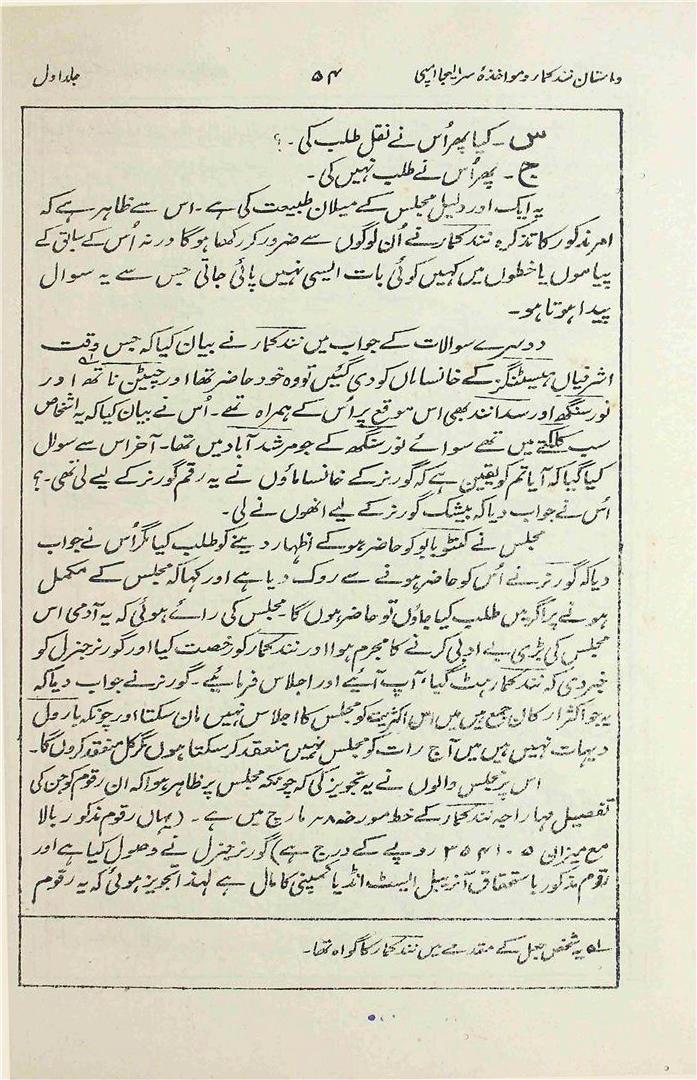 داستان نند کمار و مواخذہ سر ایلیجا امپی ۵۴ جلد اول
س۔ کیا پھر اُس نے نقل طلب کی۔؟
ج۔ پھر اُس نے طلب نہیں کی۔
یہ ایک اور دلیل مجلس کے میلان طبیعت کی ہے۔ اس سے ظاہر ہے کہ
امر مذکور کا تذکرہ نند کمار نے اُن لوگوں سے ضرور کر رکھا ہوگا ورنہ اُس کے سابق کے
پیاموں یا خطوں میں کہیں کوئی بات ایسی نہیں پائی جاتی جس سے یہ سوال
پیدا ہوتا ہو۔
دوسرے سوالات کے جواب میں نند کمار نے بیان کیا کہ جس وقت
اشرفیاں ہیسٹنگز کے خانساماں کو دی گئیں تو وہ خود حاضر تھا اور چیٹن ناتھ اور
نور سنگھ اور سدانند بھی اس موقع پر اُس کے ہمراہ تھے۔ اُس نے بیان کیا کہ یہ اشخاص
سب کلکتے میں تھے سوائے نور سنگھ کے جو مرشد آباد میں تھا۔ آخر اس سے سوال
کیا گیا کہ آیا تم کو یقین ہے کہ گورنر کے خانساماؤں نے یہ رقم گورنر کے لیے لی تھی۔؟
اُس نے جواب دیا کہ بیشک گورنر کے لیے انھوں نے لی۔
مجلس نے کنٹو بابو کو حاضر ہو کے اظہار دینے کو طلب کیا مگر اُس نے جواب
دیا کہ گورنر نے اُس کو حاضر ہونے سے روک دیا ہے اور کہا کہ مجلس کے مکمل
ہونے پر اگر میں طلب کیا جاؤں تو حاضر ہوں گا۔ مجلس کی رائے ہوئی کہ یہ آدمی اس
مجلس کی بڑی بے ادبی کرنے کا مجرم ہوا اور نند کمار کو رخصت کیا اور گورنر جنرل کو
خبر دی کہ نند کمار ہٹ گیا، آپ آئیے اور اجلاس فرمائیے۔ گورنر نے جواب دیا کہ
یہ جو اکثر ارکان جمع ہیں میں اس اکثریت کو مجلس کا اجلاس نہیں مان سکتا اور چونکہ بارول
دیہات نہیں ہیں میں آج رات کو مجلس نہیں منعقد کر سکتا ہوں مگر کل منعقد کروں گا۔
اس پر مجلس والوں نے یہ تجویز کی کہ چونکہ مجلس پر ظاہر ہوا کہ ان رقوم کو جن کی
تفصیل مہاراجہ نند کمار کے خط مورخہ ۸ مارچ میں ہے۔ (یہاں رقوم مذکور بالا
مع میزان ۳۵۴۱۰۵ روپے کے درج ہے) گورنر جنرل نے وصول کیا ہے اور
رقوم مذکور باستحقاق آنریبل ایسٹ انڈیا کمپنی کا مال ہے لہذا تجویز ہوئی کہ یہ رقوم
لہ یہ شخص جعل کے مقدمے میں نند کمار کا گواہ تھا۔